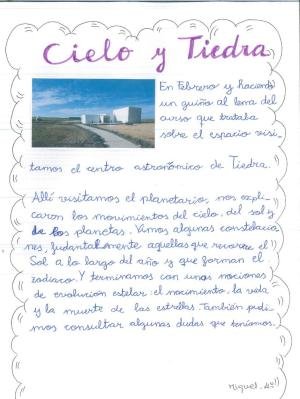 Cielo y Tiedra
En Febrero y haciendo
un guiño al lema del
curso que trataba
sobre el espacio visi-
tamos el centro astronómico de Tiedra.
Allí visitamos el planetario, nos expli-
caron los movimientos del cielo, del sol y
de los planetas. Vimos algunas constelacio
nes, fudantalmente aquellas que recorre el
Sol a lo largo del año y que forman el
zodíaco. Y terminamos con unas nociones
de evolución estelar: el nacimiento, la vida
y la muerte de las estrellas. También pudi-
mos consultar algunas dudas que teníamos.
Miguel. 4º